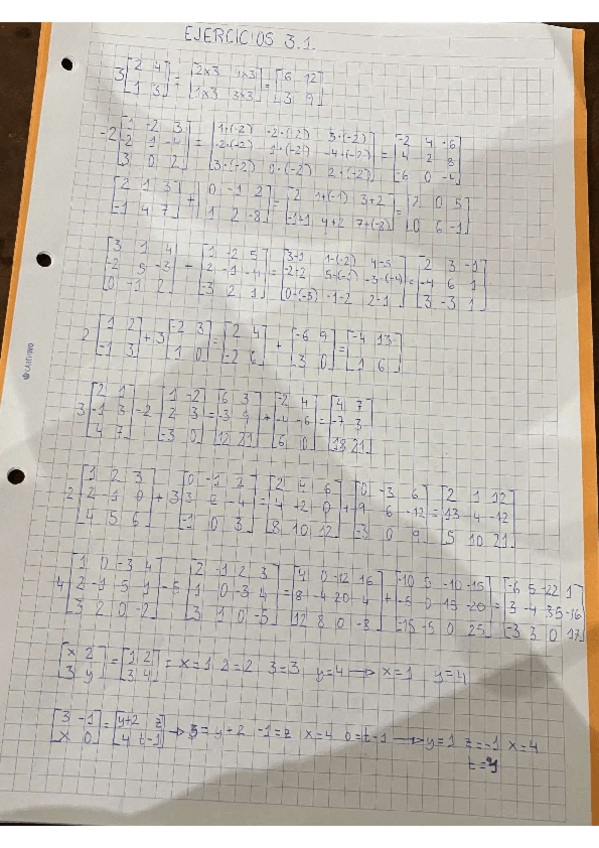 EJERCICIOS 3.1.
3 [2 4; 1 3] = [2×3 4×3; 1×3 3×3] = [6 12; 3 9]
-2 [1 -2 3; 2 1 -4; 3 0 2] = [1·(-2) -2·(-2) 3·(-2); 2·(-2) 1·(-2) -4·(-2); 3·(-2) 0·(-2) 2·(-2)] = [-2 4 -6; 4 2 8; -6 0 -4]
[2 1 3; -1 4 7] + [0 -1 2; 1 2 -8] = [2 1+(-1) 3+2; -1+1 4+2 7+(-8)] = [2 0 5; 0 6 -1]
[3 1 4; -2 5 -3; 0 -1 2] - [1 -2 5; 2 -1 -4; -3 2 1] = [3-1 1-(-2) 4-5; -2-2 5-(-1) -3-(-4); 0-(-3) -1-2 2-1] = [2 3 -1; -4 6 1; 3 -3 1]
2 [1 2; -1 3] + 3 [-2 3; 1 0] = [2 4; -2 6] + [-6 9; 3 0] = [-4 13; 1 6]
3 [2 1; -1 3; 4 7] - 2 [1 -2; 2 3; -3 0] = [6 3; -3 9; 12 21] + [-2 4; -4 -6; 6 0] = [4 7; -7 3; 18 21]
2 [1 2 3; 2 -1 0; 4 5 6] + 3 [0 -1 2; 3 2 -4; -1 0 3] = [2 4 6; 4 -2 0; 8 10 12] + [0 -3 6; 9 6 -12; -3 0 9] = [2 1 12; 13 4 -12; 5 10 21]
4 [1 0 -3 4; 2 -1 5 1; 3 2 0 -2] - 5 [2 -1 2 3; 1 0 -3 4; 3 1 0 -5] = [4 0 -12 16; 8 -4 20 4; 12 8 0 -8] + [-10 5 -10 -15; -5 0 15 -20; -15 -5 0 25] = [-6 5 -22 1; 3 -4 35 -16; -3 3 0 17]
[x 2; 3 y] = [1 2; 3 4] = x=1 2=2 3=3 y=4 → x=1 y=4
[3 -1; x 0] = [y+2 z; 4 t-1] → 3=y+2 -1=z x=4 0=t-1 → y=1 z=-1 x=4
t=1